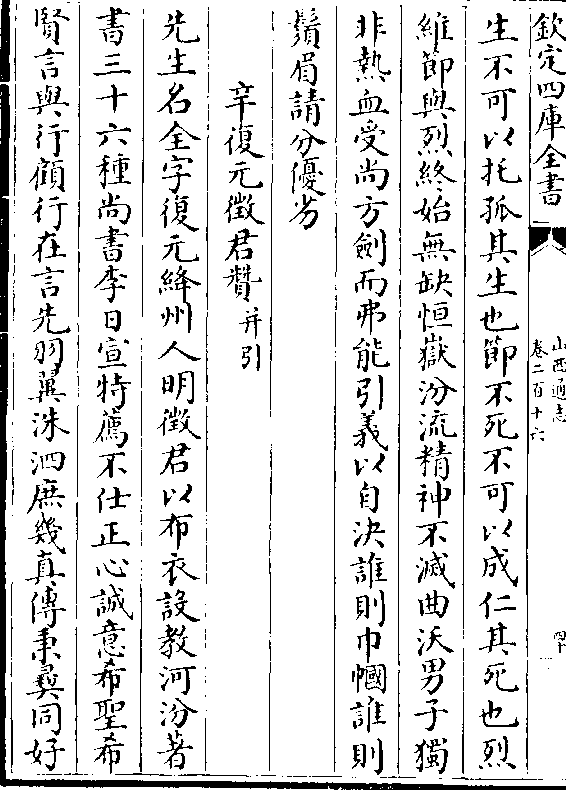 欽定四庫全書
山西通志
卷二百十六
四十
生不可以托孤其生也節不死不可以成仁其死也烈
維節與烈終始無缺恒嶽汾流精神不滅曲沃男子獨
非熱血受尚方劍而弗能引義以自決誰則巾幗誰則
鬚眉請分優劣
辛復元徵君贊并引
先生名全字復元絳州人明徵君以布衣設教河汾著
書三十六種尚書李日宣特薦不仕正心誠意希聖希
賢言與行顧行在言先羽翼洙泗庶幾真傳秉彛同好